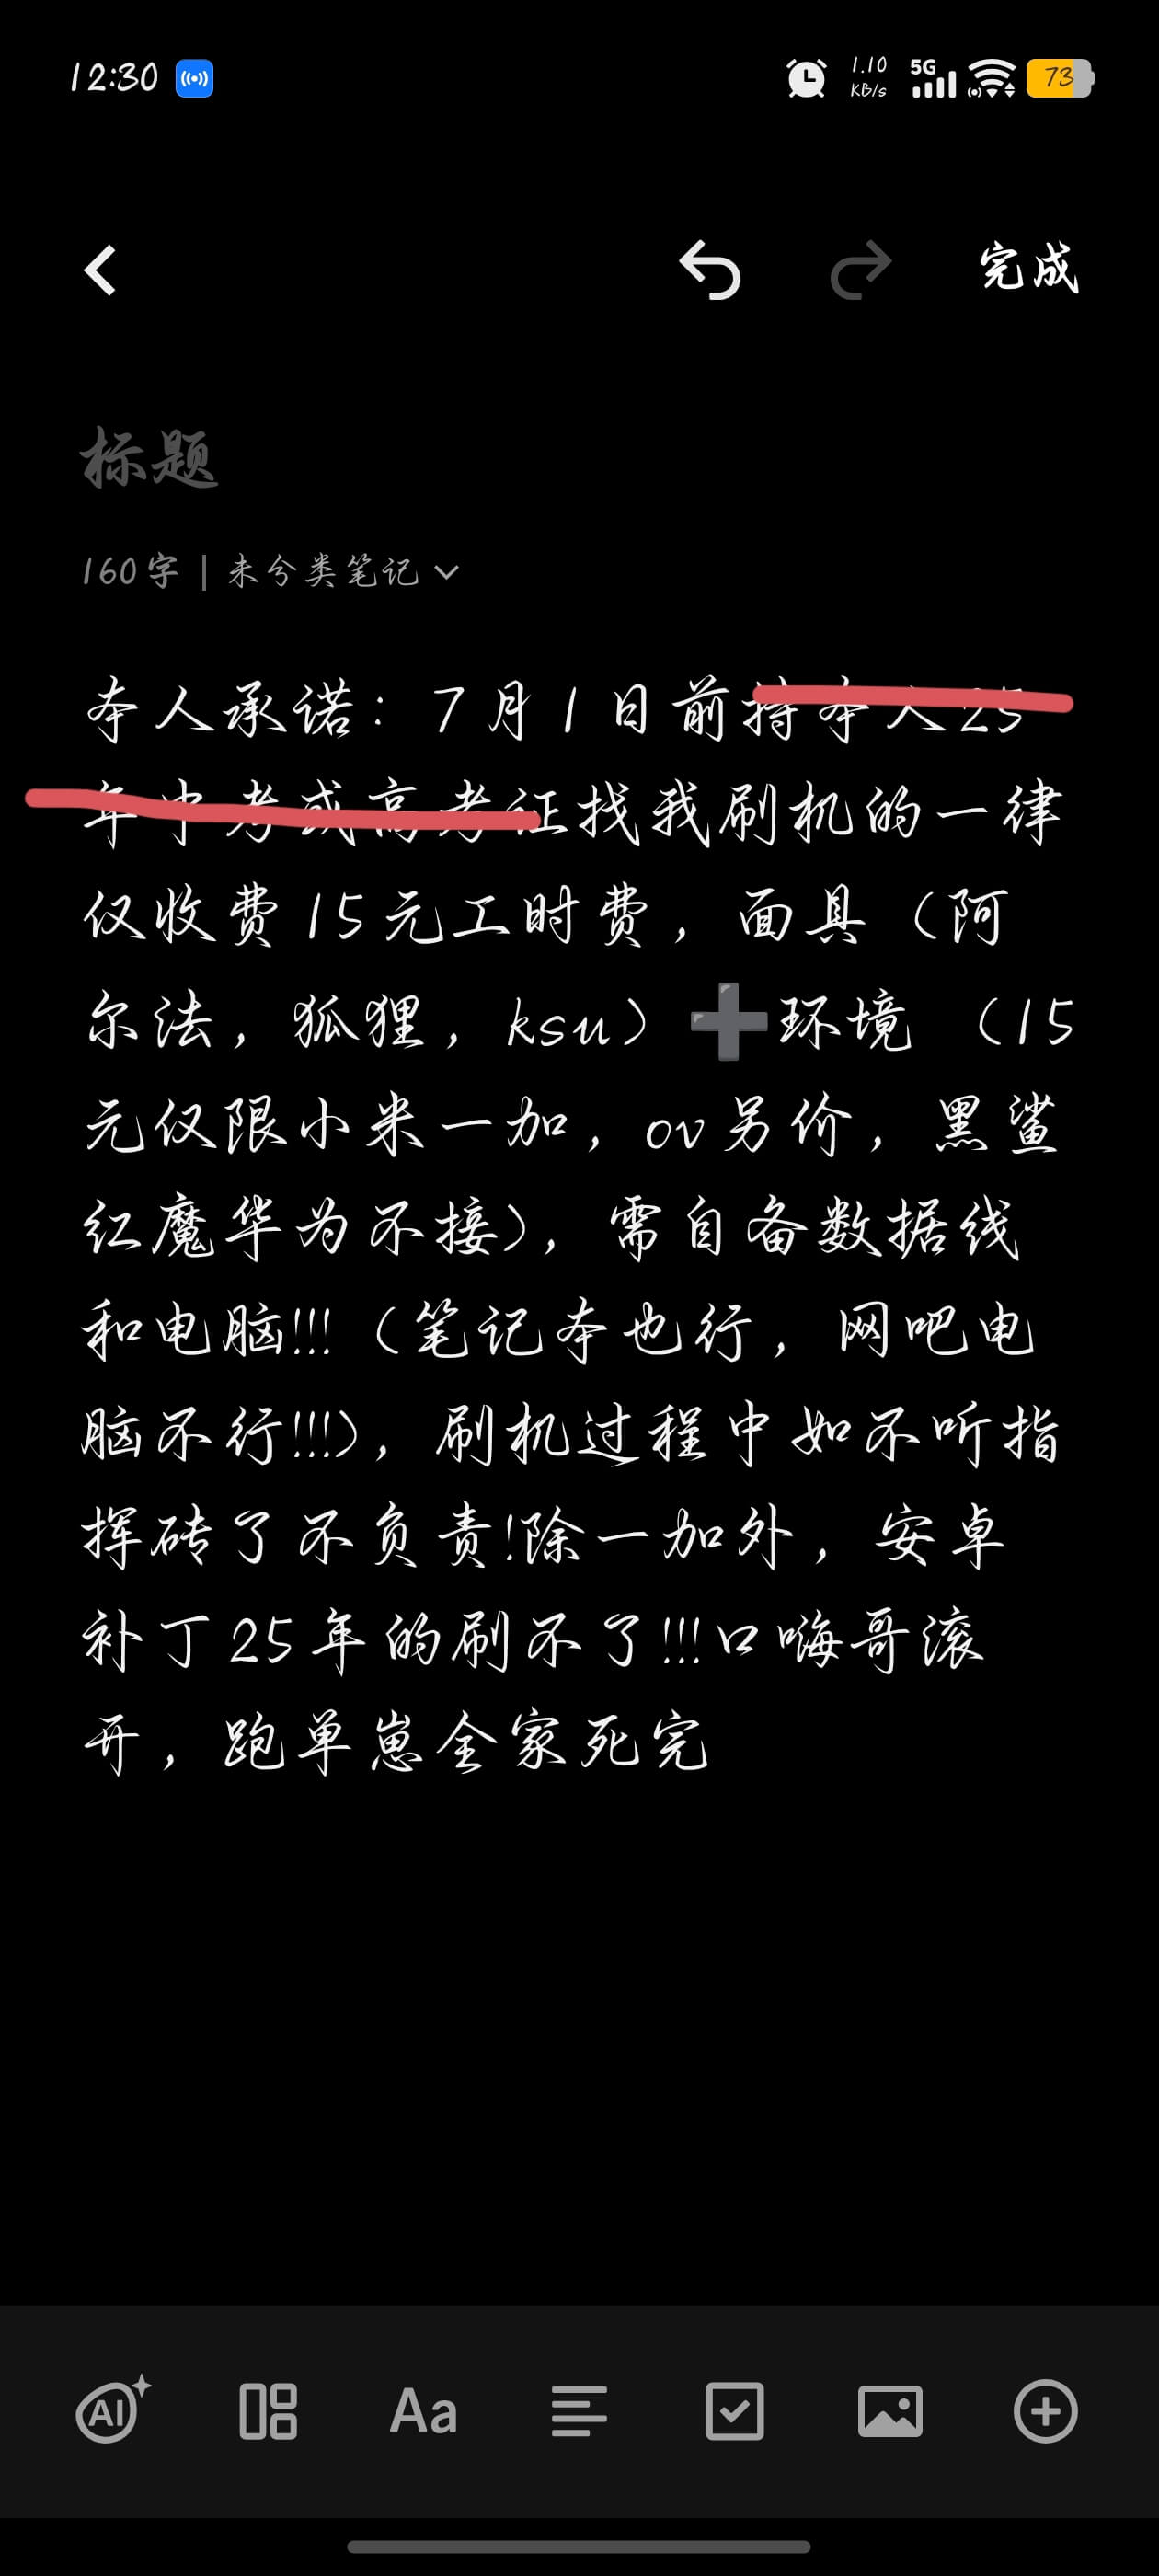 12:30
1.10 KB/s 5G 73
完成
标题
160字 | 未分类笔记
本人承诺：7月1日前持本人25
年中考或高考证找我刷机的一律
仅收费15元工时费，面具（阿
尔法，狐狸，ksu）➕环境（15
元仅限小米一加，ov另价，黑鲨
红魔华为不接），需自备数据线
和电脑!!!（笔记本也行，网吧电
脑不行!!!），刷机过程中如不听指
挥砖了不负责!除一加外，安卓
补丁25年的刷不了!!!口嗨哥滚
开，跑单崽全家死完
AI Aa